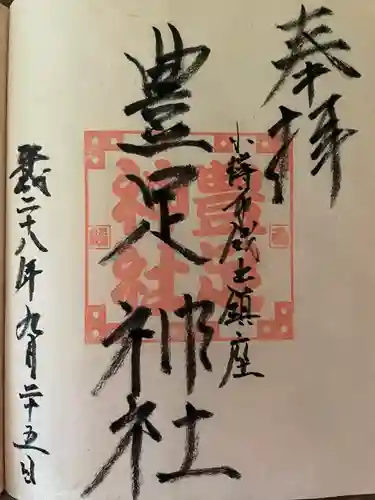 奉拝
小樽市蔵王鎮座
豊足神社
平成二十八年九月二十五日
豊足神社